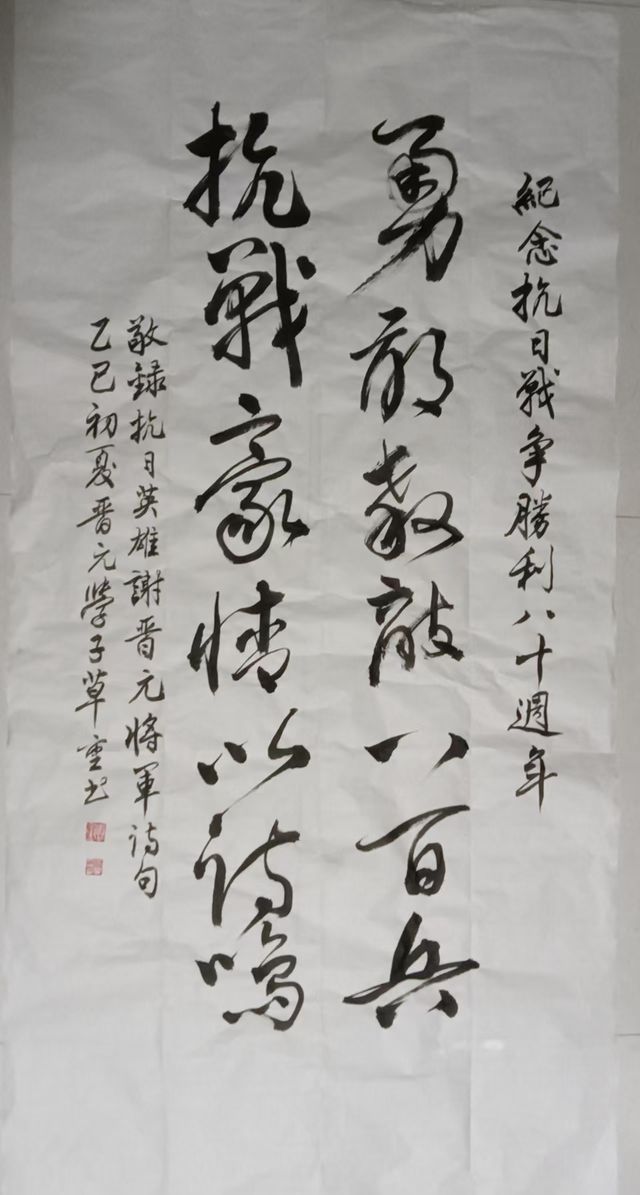 紀念抗日戰争勝利八十週年
勇敢殺敵八百兵
抗戰豪情以詩鳴
敬錄抗日英雄謝晋元將軍詩句
乙巳初夏晋元學子草重书